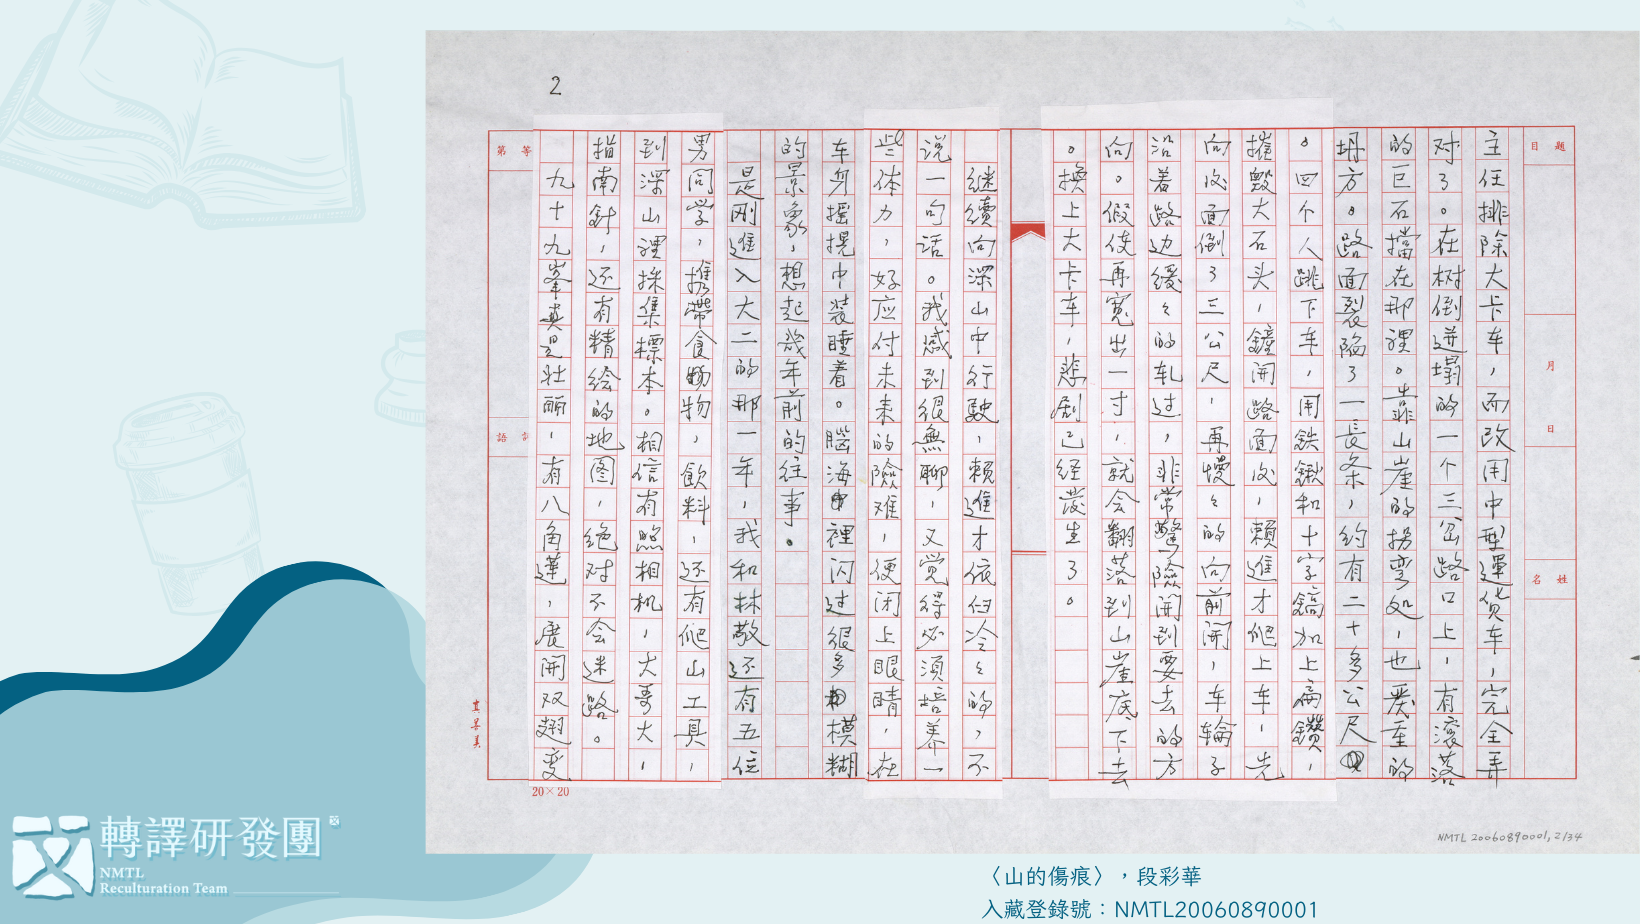 2
題目
月
日
姓名
主任排除大卡车，而改用中型運貨车，完全弄
对了。在树倒进塌的一个三岔路口上，有滚落
的巨石擋在那裡。靠山崖的拐弯处，也严重的
坍方。路面裂陷了一長条，约有二十多公尺
。四个人跳下车，用鉄鍬和十字鎬加上扁鑽，
摧毀大石头，鏟開路面后，賴進才爬上车，先
向后面倒了三公尺，再慢々的向前開，车輪子
沿着路边缓々的轧过，非常驚險開到要去的方
向。假使再寬出一寸，就会翻落到山崖底下去
。換上大卡车，悲剧已经發生了。
继續向深山中行駛，賴進才依旧冷々的，不
说一句话。我感到很無聊，又覚得必須培养一
些体力，好应付未来的險难，便闭上眼睛，在
车身摇提中装睡着。腦海裡闪过很多模糊
的景象，想起幾年前的往事。
是刚進入大二的那一年，我和林敬还有五位
男同学，携帶食物，飲料，还有爬山工具，
到深山裡採集標本。相信有照相机，大哥大，
指南針，还有精绘的地图，绝对不会迷路。
九十九峯真是壮丽，有八角蓮，展開双翅变
第
等
評語
真善美
20×20
NMTL 20060890001, 2/34
轉譯研發團
NMTL
Reculturation Team
〈山的傷痕〉，段彩華
入藏登錄號：NMTL20060890001